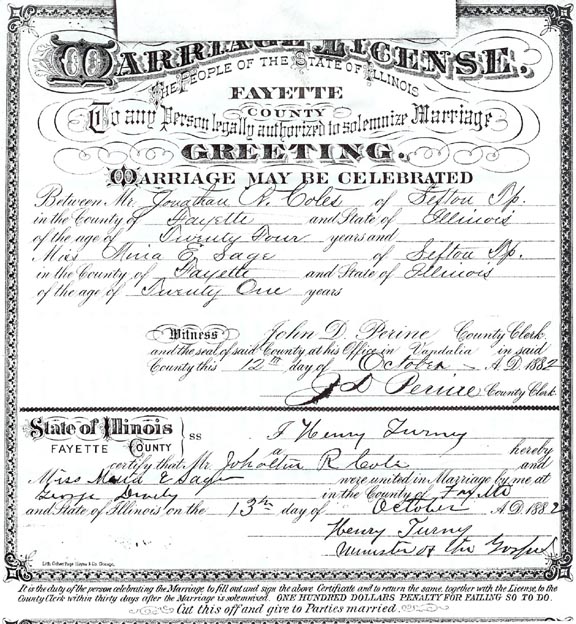 MARRIAGE LICENSE.
THE PEOPLE OF THE STATE OF ILLINOIS
FAYETTE
COUNTY
To any Person legally authorized to solemnize Marriage
GREETING.
MARRIAGE MAY BE CELEBRATED
Between Mr. Jonathan R. Coles of Sefton Tp.
in the County of Fayette and State of Illinois
of the age of Twenty Four years and
Miss E Sage of Sefton Tp.
in the County of Fayette and State of Illinois
of the age of Twenty One years
Witness John D. Perine County Clerk
and the seal of said County at his Office in Vandalia in said
County this 12th day of October A.D. 1882
J D Perine County Clerk
State of Illinois
FAYETTE COUNTY
SS I Henry Turney hereby
certify that Mr. R Cole and
Miss E Sage were united in Marriage by me at
George in the County of Fayette
and State of Illinois on the 13th day of October A.D. 1882
Henry Turney
Minister of the Gospel
It is the duty of the person celebrating the Marriage to fill out and sign the above Certificate and to return the same, together with the License, to the
County Clerk within thirty days after the Marriage is solemnized. ONE HUNDRED DOLLARS PENALTY FOR FAILING SO TO DO.
Cut this off and give to Parties married.